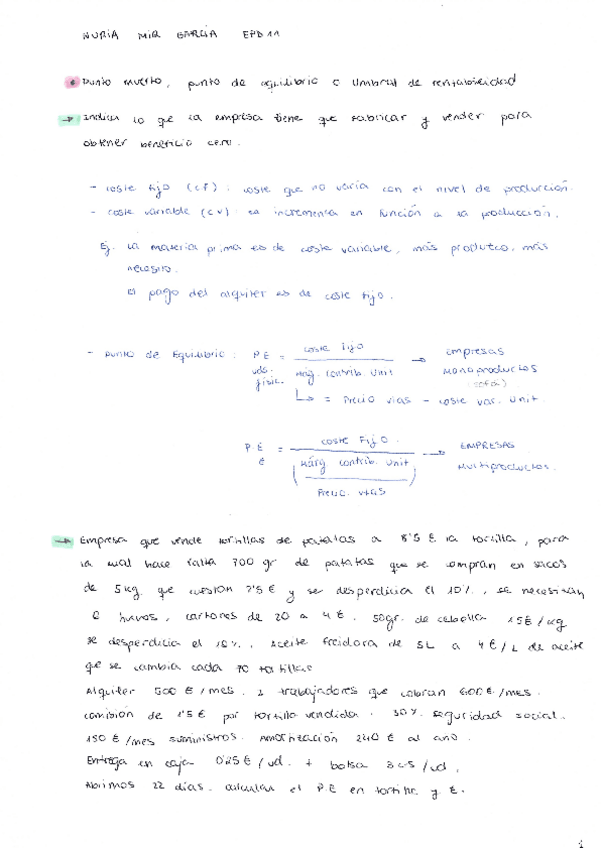 NURIA MIR GARCIA EPD 11
Punto muerto, punto de equilibrio o Umbral de rentabilidad
→ Indica lo que la empresa tiene que fabricar y vender para
obtener beneficio cero.
- coste fijo (cf): coste que no varia con el nivel de producción.
- coste variable (cv): se incrementa en función a la producción.
Ej. La materia prima es de coste variable, más produzco, más
necesito.
El pago del alquiler es de coste fijo.
- Punto de Equilibrio: P E uds. físic. = coste fijo / Márg. contrib. Unit → empresas MONOPRODUCTOS (sofá)
↳ = Precio vtas - coste var. unit.
P.E € = coste Fijo. / (Márg contrib. Unit / Precio. vtas) → EMPRESAS Multiproductos.
→ Empresa que vende tortillas de patatas a 8'5 € la tortilla, para
la cual hace falta 700 gr de patatas que se compran en sacos
de 5 kg. que cuestan 7'5 € y se desperdicia el 10%, se necesitan
huevos, cartones de 20 a 4 €. 50gr. de cebolla 1'5 €/kg
se desperdicia el 10%, aceite freidora de 5L a 4 €/L de aceite
que se cambia cada 70 tortillas
Alquiler 500 €/mes. 2 trabajadores que cobran 600 €/mes.
comisión de 1'5 € por tortilla vendida. 30% seguridad social.
150 €/mes suministros. Amortización 240 € al año.
Entrega en caja 0'25 €/ud. + bolsa
Abrimos 22 días. calcular el P.E en tortilla y €.
1